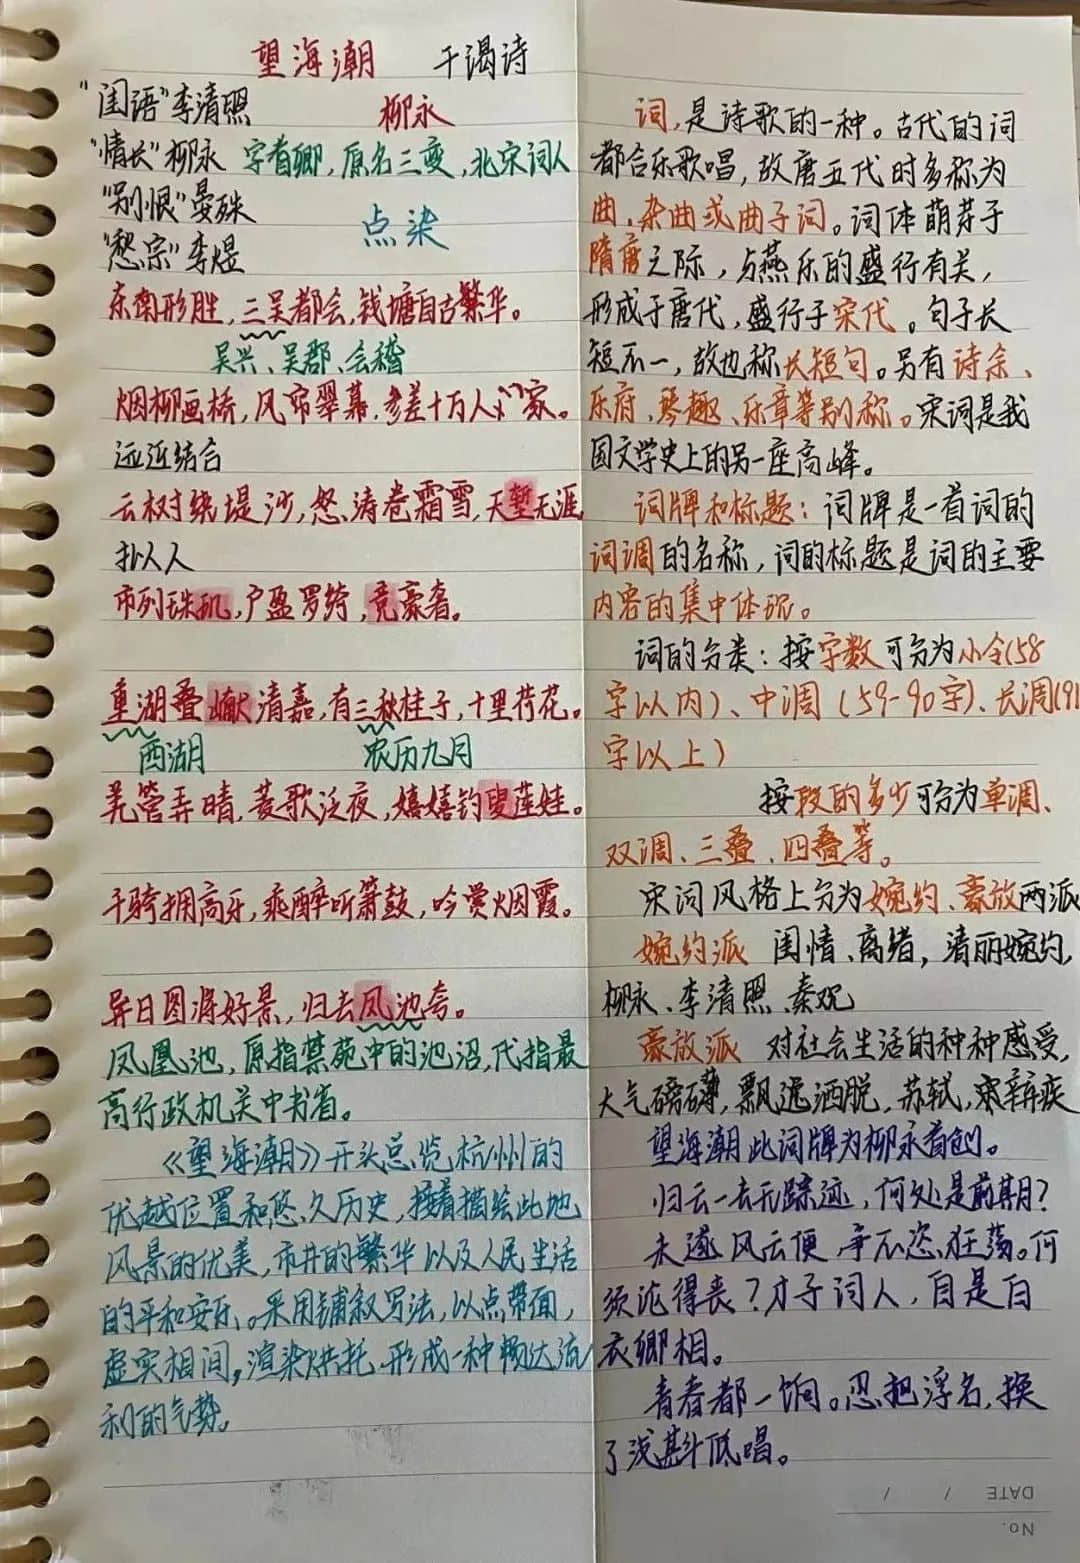 望海潮 干谒诗
"闺语"李清照 柳永
"情长"柳永 字耆卿,原名三变,北宋词人
"别恨"晏殊 点染
"愁宗"李煜
东南形胜,三吴都会,钱塘自古繁华。
吴兴、吴郡、会稽
烟柳画桥,风帘翠幕,参差十万人家。
远近结合
云树绕堤沙,怒涛卷霜雪,天堑无涯
市列珠玑,户盈罗绮,竞豪奢。
重湖叠巘清嘉,有三秋桂子,十里荷花。
西湖 农历九月
羌管弄晴,菱歌泛夜,嬉嬉钓叟莲娃。
千骑拥高牙,乘醉听箫鼓,吟赏烟霞。
异日图将好景,归去凤池夸。
凤凰池,原指禁苑中的池沼,代指最
高行政机关中书省。
《望海潮》开头总览杭州的
优越位置和悠久历史,接着描绘此地
风景的优美,市井的繁华以及人民生活
的平和安乐。采用铺叙写法,以点带面,
虚实相间,渲染烘托,形成一种畅达流
利的气势。
词,是诗歌的一种。古代的词
都合乐歌唱,故唐五代时多称为
曲、杂曲或曲子词。词体萌芽于
隋唐之际,与燕乐的盛行有关,
形成于唐代,盛行于宋代。句子长
短不一,故也称长短句。另有诗余、
乐府、琴趣、乐章等别称。宋词是我
国文学史上的另一座高峰。
词牌和标题:词牌是一首词的
词调的名称,词的标题是词的主要
内容的集中体现。
词的分类:按字数可分为小令(58
字以内)、中调(59-90字)、长调(91
字以上)
按段的多少可分为单调、
双调、三叠、四叠等。
宋词风格上分为婉约、豪放两派
婉约派 闺情、离绪,清丽婉约,
柳永、李清照、秦观
豪放派 对社会生活的种种感受,
大气磅礴,飘逸洒脱,苏轼,辛弃疾
望海潮此词牌为柳永首创。
归云一去无踪迹,何处是前期?
未遂风云便,争不恣狂荡。何
须论得丧?才子词人,自是白
衣卿相。
青春都一饷。忍把浮名,换
了浅斟低唱。
DATE / /
No.